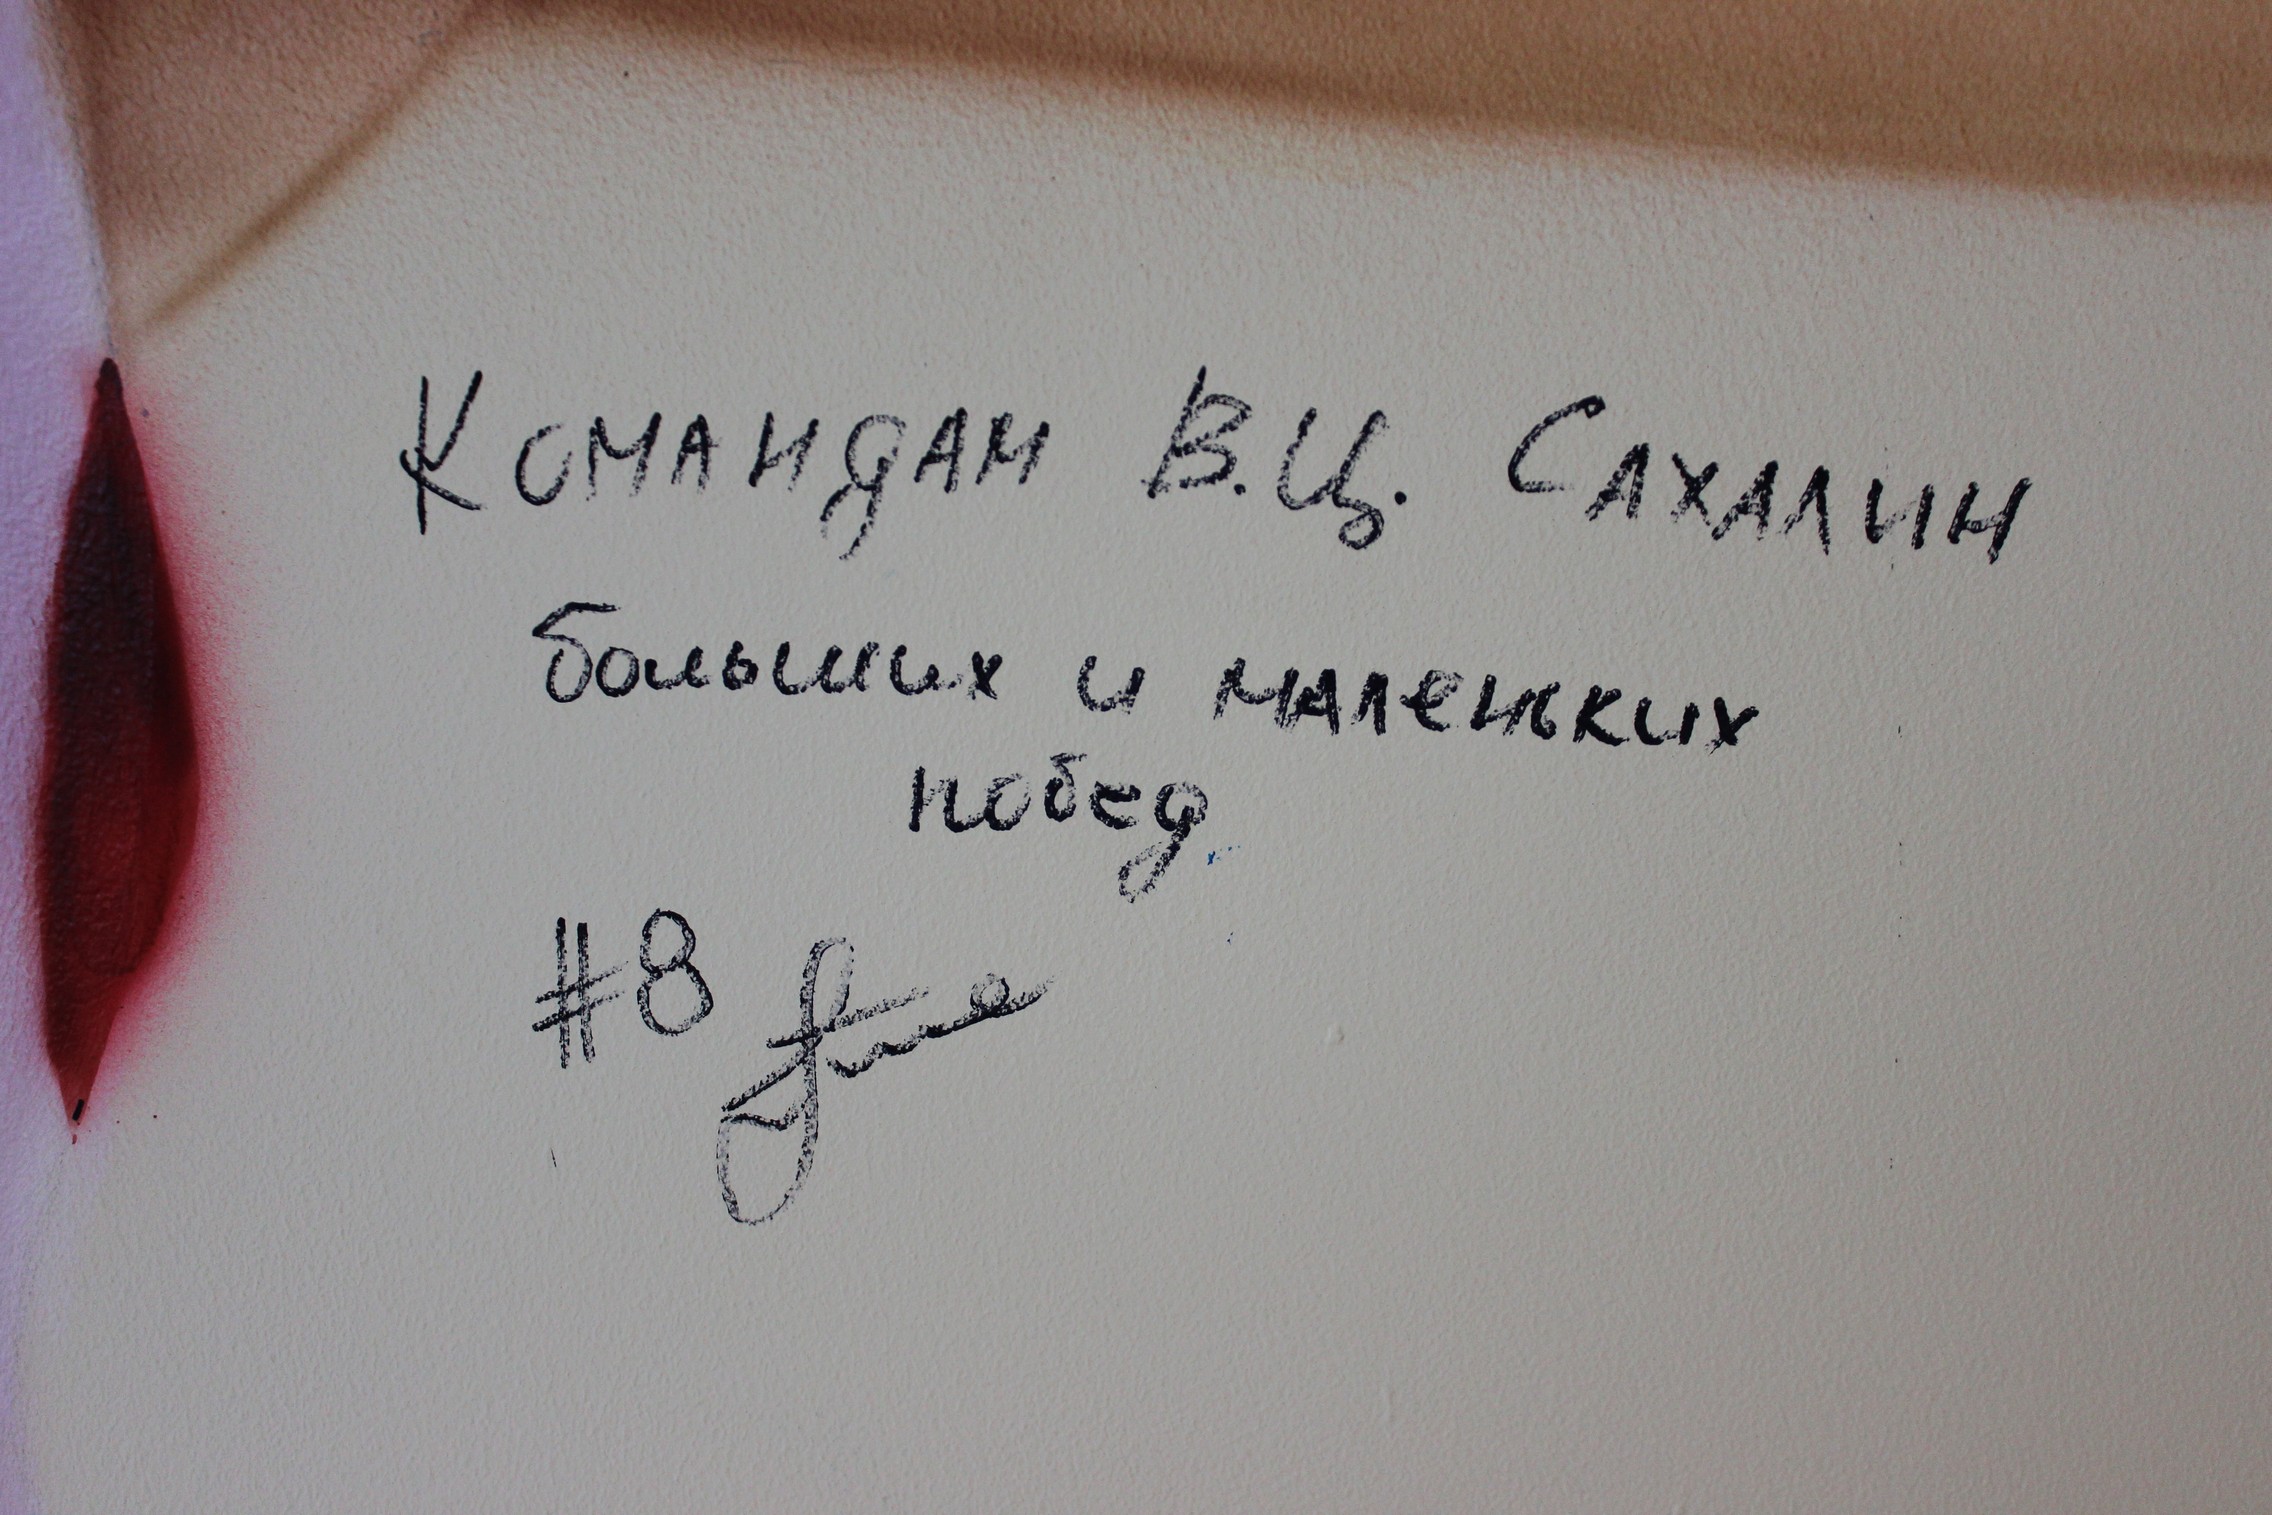 Командам В.Ц. Сахалин
больших и маленьких
побед
#8